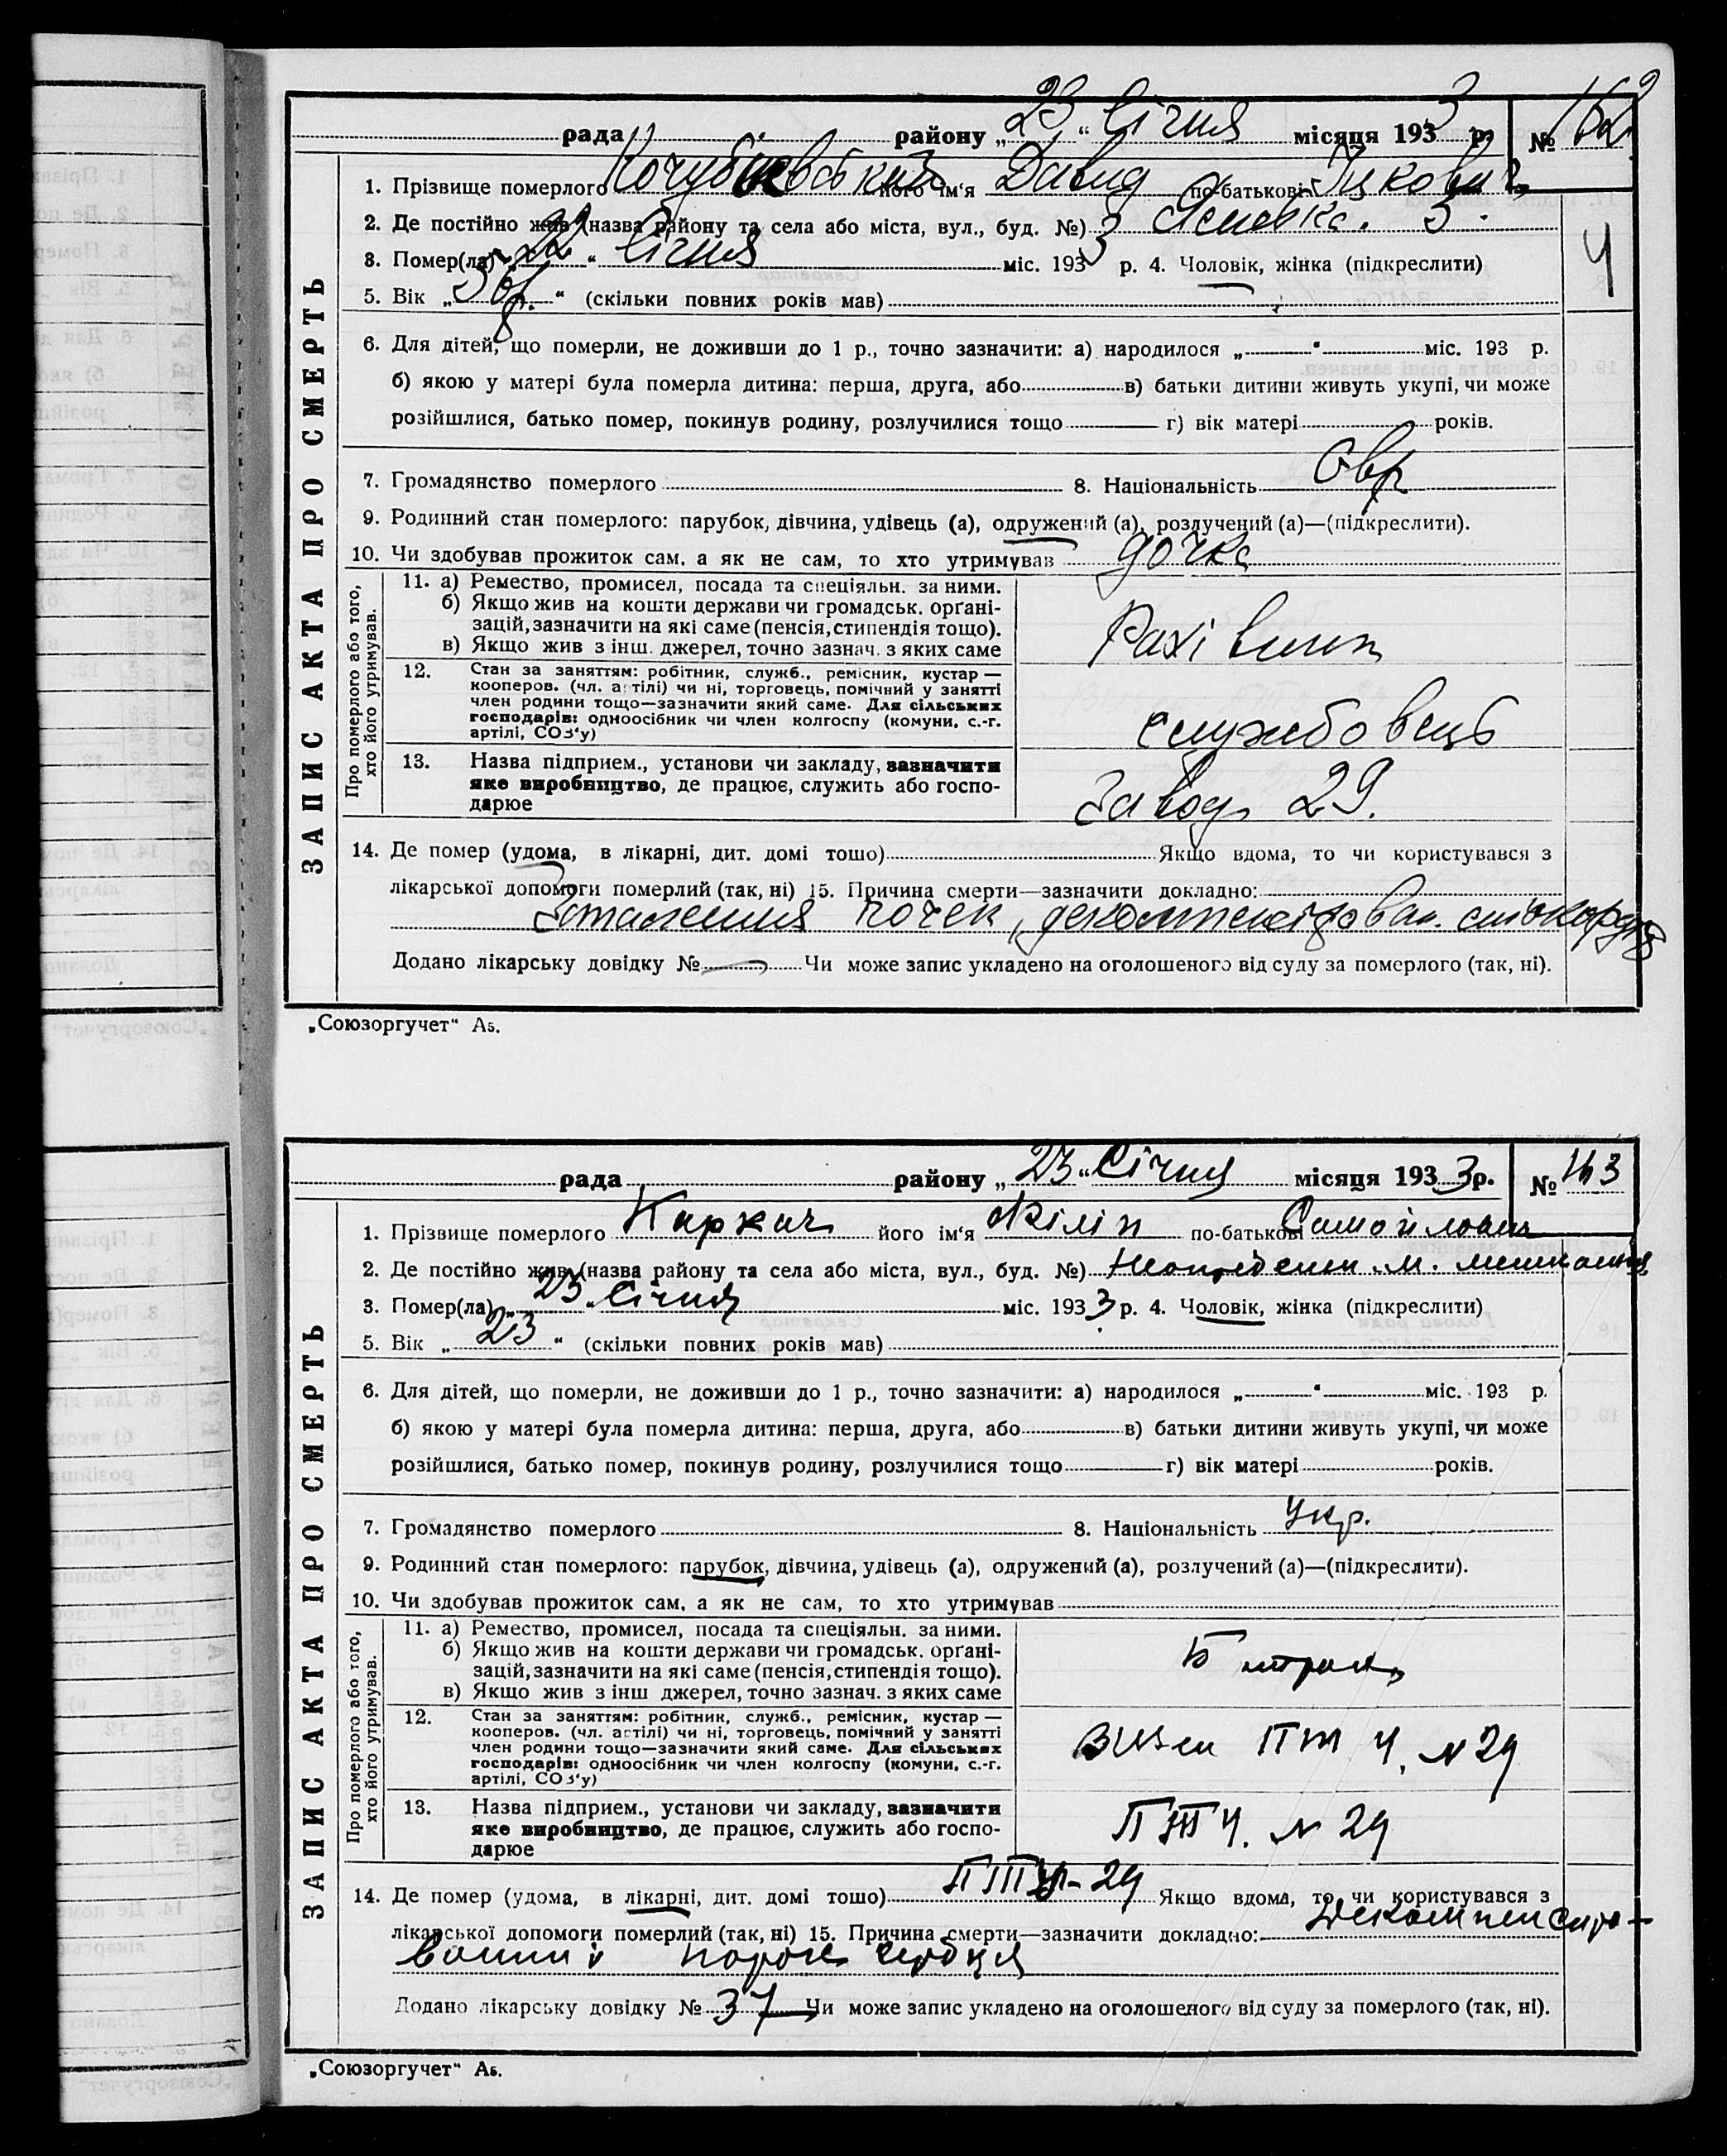 рада району „23“ Січня місяця 1933 р. № 162
ЗАПИС АКТА ПРО СМЕРТЬ
1. Прізвище померлого його ім'я Давид по-батькові Іцкович
2. Де постійно жив (назва району та села або міста, вул., буд. №) 3
3. Помер(ла) „22“ Січня міс. 1933 р. 4. Чоловік, жінка (підкреслити)
5. Вік „ “ (скільки повних років мав)
6. Для дітей, що померли, не доживши до 1 р., точно зазначити: а) народилося „ “ міс. 193 р.
б) якою у матері була померла дитина: перша, друга, або в) батьки дитини живуть укупі, чи може
розійшлися, батько помер, покинув родину, розлучилися тощо г) вік матері років.
7. Громадянство померлого 8. Національність Євр
9. Родинний стан померлого: парубок, дівчина, удівець (а), одружений (а), розлучений (а)—(підкреслити).
10. Чи здобував прожиток сам, а як не сам, то хто утримував дочка
Про померлого або того, хто його утримував.
11. а) Ремество, промисел, посада та спеціяльн. за ними.
б) Якщо жив на кошти держави чи громадськ. орґані-
зацій, зазначити на які саме (пенсія, стипендія тощо).
в) Якщо жив з інш. джерел, точно зазнач. з яких саме
Рахівник
12. Стан за заняттям: робітник, служб., ремісник, кустар —
кооперов. (чл. артілі) чи ні, торговець, помічний у занятті
член родини тощо—зазначити який саме. Для сільських
господарів: одноосібник чи член колгоспу (комуни, с.-г.
артілі, СОЗ'у)
службовець
13. Назва підприєм., установи чи закладу, зазначити
яке виробництво, де працює, служить або госпо-
дарює
Завод 29.
14. Де помер (удома, в лікарні, дит. домі тошо) Якщо вдома, то чи користувався з
лікарської допомоги померлий (так, ні) 15. Причина смерти—зазначити докладно:
почек,
Додано лікарську довідку № Чи може запис укладено на оголошеного від суду за померлого (так, ні).
4
„Союзоргучет“ А5.
рада району „23“ Січня місяця 1933 р. № 163
ЗАПИС АКТА ПРО СМЕРТЬ
1. Прізвище померлого його ім'я Філіп по-батькові Самойлович
2. Де постійно жив (назва району та села або міста, вул., буд. №)
3. Помер(ла) „23“ Січня міс. 1933 р. 4. Чоловік, жінка (підкреслити)
5. Вік „23“ (скільки повних років мав)
6. Для дітей, що померли, не доживши до 1 р., точно зазначити: а) народилося „ “ міс. 193 р.
б) якою у матері була померла дитина: перша, друга, або в) батьки дитини живуть укупі, чи може
розійшлися, батько помер, покинув родину, розлучилися тощо г) вік матері років.
7. Громадянство померлого 8. Національність Укр.
9. Родинний стан померлого: парубок, дівчина, удівець (а), одружений (а), розлучений (а)—(підкреслити).
10. Чи здобував прожиток сам, а як не сам, то хто утримував
Про померлого або того, хто його утримував.
11. а) Ремество, промисел, посада та спеціяльн. за ними.
б) Якщо жив на кошти держави чи громадськ. орґані-
зацій, зазначити на які саме (пенсія, стипендія тощо).
в) Якщо жив з інш джерел, точно зазнач. з яких саме
12. Стан за заняттям: робітник, служб., ремісник, кустар —
кооперов. (чл. артілі) чи ні, торговець, помічний у занятті
член родини тощо—зазначити який саме. Для сільських
господарів: одноосібник чи член колгоспу (комуни, с.-г.
артілі, СОЗ'у)
№ 29
13. Назва підприєм., установи чи закладу, зазначити
яке виробництво, де працює, служить або госпо-
дарює
№ 29
14. Де помер (удома, в лікарні, дит. домі тошо) Якщо вдома, то чи користувався з
лікарської допомоги померлий (так, ні) 15. Причина смерти—зазначити докладно: Декомпенсиро-
ванний порок сердця
Додано лікарську довідку № 37 Чи може запис укладено на оголошеного від суду за померлого (так, ні).
„Союзоргучет“ А5.